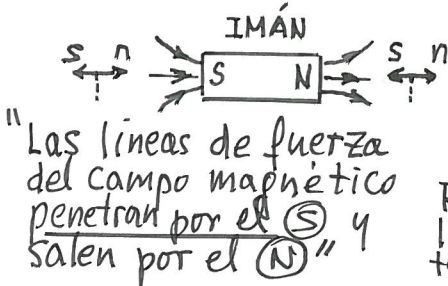 IMÁN
s n S N s n
"Las líneas de fuerza
del campo magnético
penetran por el S y
salen por el N"